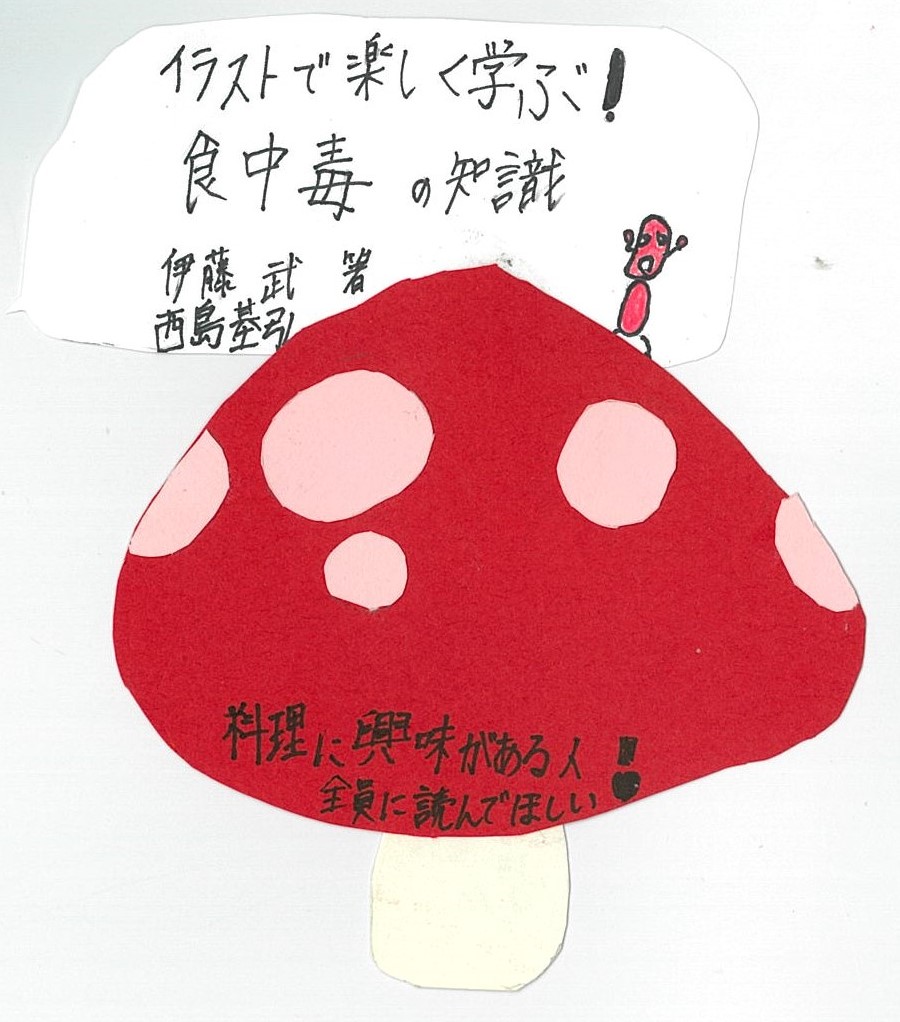 イラストで楽しく学ぶ！
食中毒の知識
伊藤 武 著
西島基弘
料理に興味がある人
全員に読んでほしい！